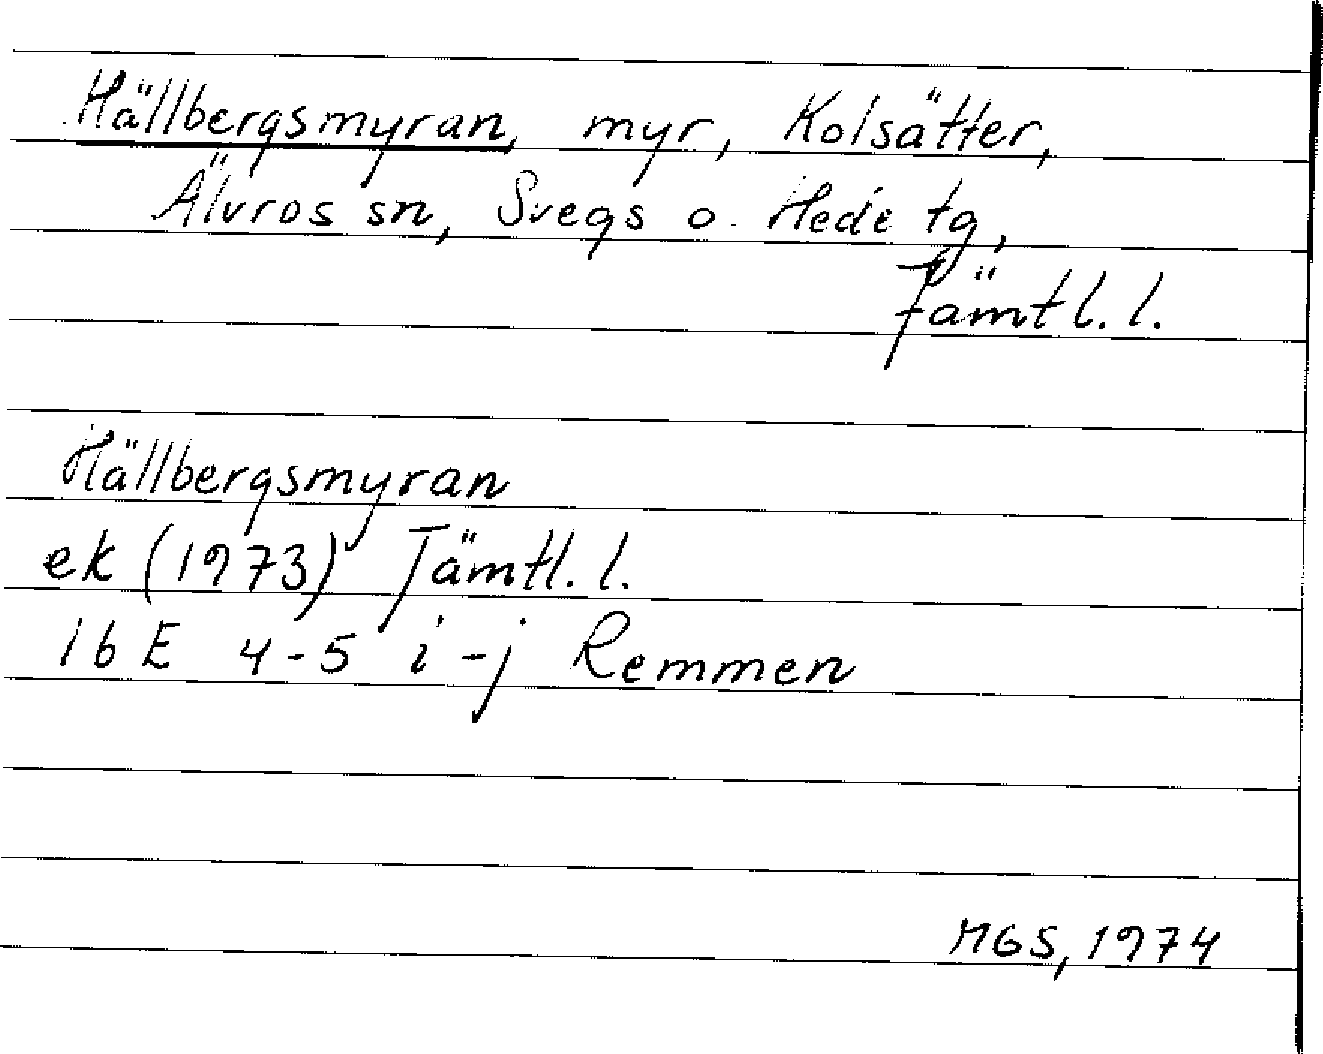 Hällbergsmyran, myr, Kolsätter,
Älvros sn, Svegs o. Hede tg,
Jämtl. l.
Hällbergsmyran
ek (1973) Jämtl. l.
16 E 4-5 i-j Remmen
MGS, 1974